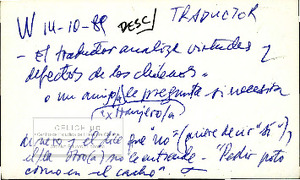 W 14-10-89 DESC/ TRADUCTOR
- El traductor analiza virtudes y
defectos de los chilenos.
o un amigo/a le pregunta si necesita
extranjero/a
dinero y el dice que "no" (quiere decir "sí") y
el/la otro(a) no le entiende - "Pedir poto
como en el cacho".